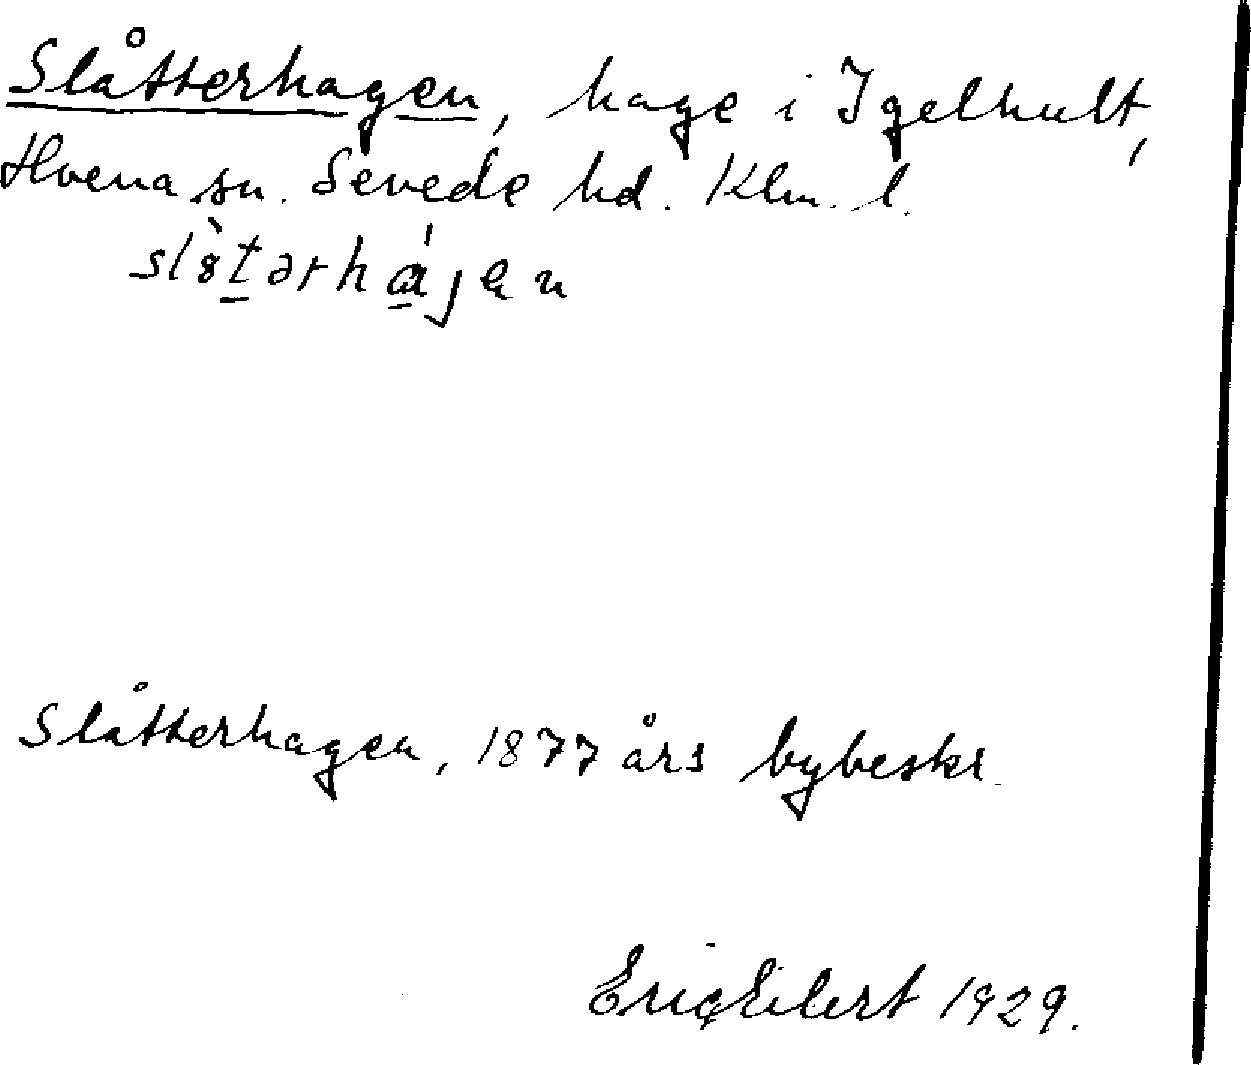 Slåtterhagen, hage i Igelhult,
Hvena sn. Sevede hd. Klm. l.
Slåtterhagen, 1877 års bybeskr.
Eric Eilert 1929.